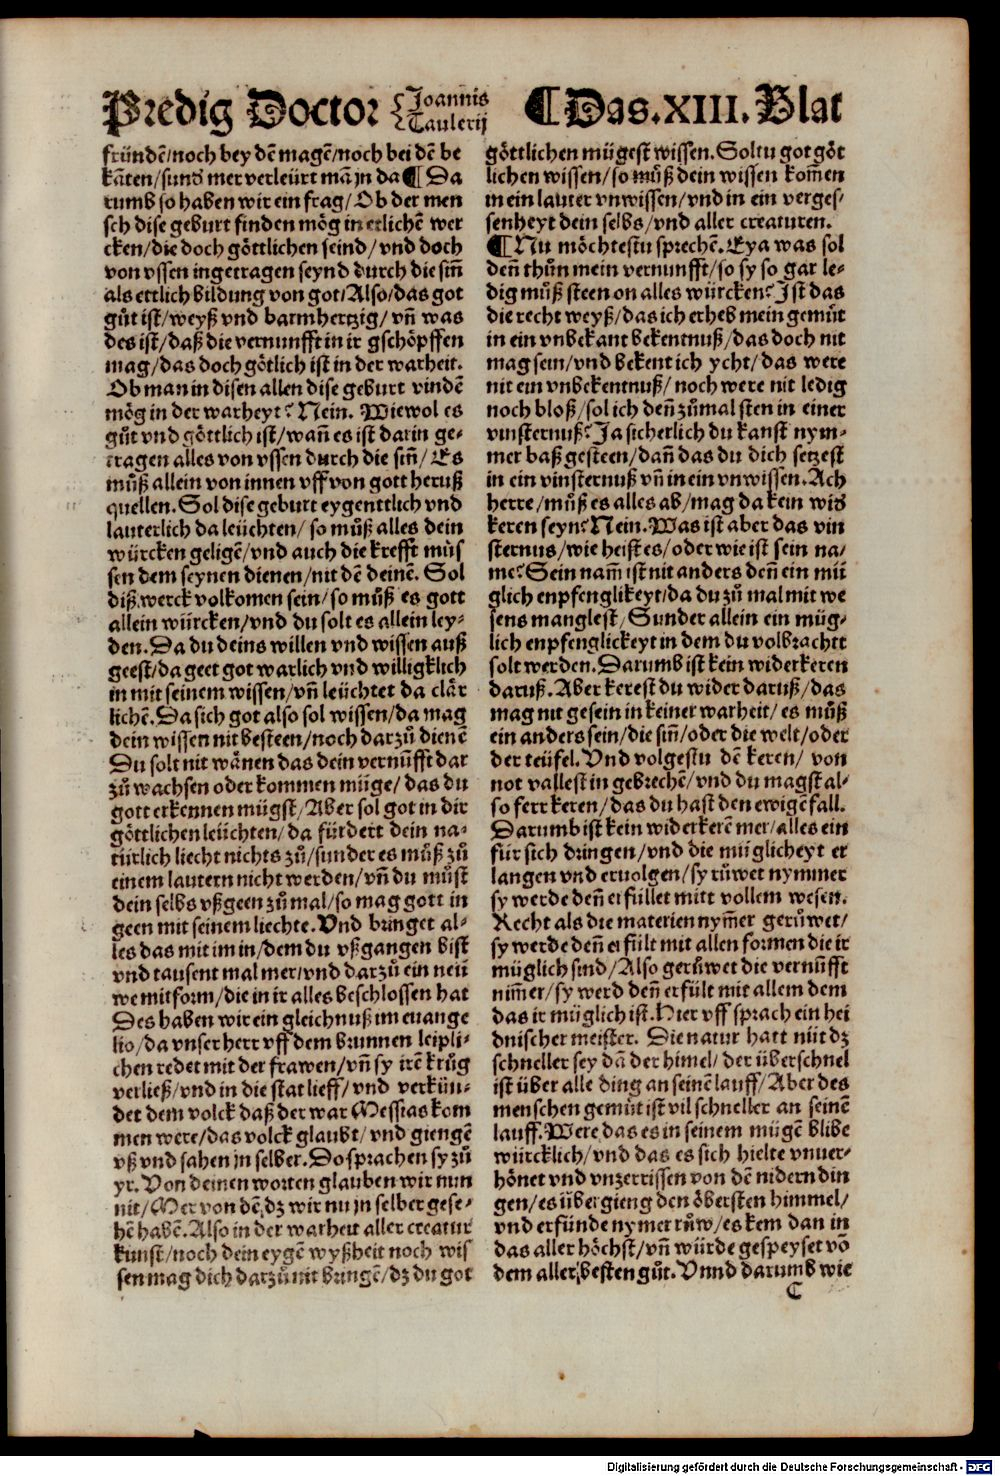 Predig Doctor {Joannis Taulerij ¶Das.XIII.Blat
fründē/noch bey dē magē/noch bei dē be
kāten/sund mer verleürt mā jn da¶ Da
rumb so haben wir ein frag/Ob der men
sch dise geburt finden mög in etlichē wer
cken/die doch göttlichen seind/vnd doch
von vssen ingetragen seynd durch die sin̄
als ettlich bildung von got/Also/das got
gůt ist/weyß vnd barmhertzig/vn̄ was
des ist/daß die vernunfft in ir gschöpffen
mag/das doch götlich ist in der warheit.
Ob man in disen allen dise geburt vindē
mög in der warheyt? Nein. Wiewol es
gůt vnd göttlich ist/wan̄ es ist darin ge-
tragen alles von vssen durch die sin̄/Es
můß allein von innen vff von gott heruß
quellen. Sol dise geburt eygenttlich vnd
lauterlich da leüchten/so můß alles dein
würcken geligē/vnd auch die krefft müs
sen dem seynen dienen/nit dē deinē. Sol
diß werck volkomen sein/so můß es gott
allein würcken/vnd du solt es allein ley-
den. Da du deins willen vnd wissen auß
geest/da geet got warlich vnd willigklich
in mit seinem wissen/vn̄ leüchtet da clär
lichē. Da sich got also sol wissen/da mag
dein wissen nit besteen/noch darzů dienē
Du solt nit wänen das dein vernūfft dar
zů wachsen oder kommen müge/das du
gott erkennen mügst/Aber sol got in dir
göttlichen leüchten/da fürdert dein na-
türlich liecht nichts zů/sunder es můß zů
einem lautern nicht werden/vn̄ du můst
dein selbs vßgeen zů mal/so mag gott in
geen mit seinem liechte. Vnd bringet al-
les das mit im in/dem du vßgangen bist
vnd tausent mal mer/vnd darzů ein neü
we mitform/die in ir alles beschlossen hat
Des haben wir ein gleichnuß im euange
lio/da vnser herr vff dem brunnen leipli-
chen redet mit der frawen/vn̄ sy irē krůg
verließ/vnd in die stat lieff/vnd verkün-
det dem volck daß der war Messias kom
men were/das volck glaubt/vnd giengē
vß vnd sahen jn selber. Do sprachen sy zů
yr. Von deinen worten glauben wir nun
nit/Mer von dē dz wir nu jn selber gese-
hē habē. Also in der warheit aller creatur
kunst/noch dein eygē wyßheit noch wis
sen mag dich darzů nit bringē/dz du got
göttlichen mügest wissen. Soltu got göt
lichen wissen/so můß dein wissen kom̄en
in ein lauter vnwissen/vnd in ein verges-
senheyt dein selbs/vnd aller creaturen.
¶Nu möchtestu sprechē. Eya was sol
den̄ thůn mein vernunfft/so sy so gar le-
dig můß steen on alles würcken? Ist das
die recht weyß/das ich erheb mein gemüt
in ein vnbekant bekentnuß/das doch nit
mag sein/vnd bekent ich ycht/das were
nit ein vnbekentnuß/noch were nit ledig
noch bloß/sol ich den̄ zůmal sten in einer
vinsternuß? Ja sicherlich du kanst nym-
mer baß gesteen/dan̄ das du dich setzest
in ein vinsternuß vn̄ in ein vnwissen. Ach
herre/můß es alles ab/mag da kein wid
keren seyn? Nein. Was ist aber das vin
sternus/wie heist es/oder wie ist sein na/
me? Sein nam̄ ist nit anders den̄ ein mü
glich enpfenglikeyt/da du zů mal mit we
sens manglest/Sunder allein ein müg-
lich enpfenglickeyt in dem du volbrachtt
solt werden. Darumb ist kein widerkeren
daruß. Aber kerest du wider daruß/das
mag nit gesein in keiner warheit/es můß
ein anders sein/die sin̄/oder die welt/oder
der teüfel. Vnd volgestu dē keren/von
not vallest in gebrechē/vnd du magst al-
so ferr keren/das du hast den ewigē fall.
Darumb ist kein widerkerē mer/alles ein
für sich dringen/vnd die müglicheyt er
langen vnd eruolgen/sy rüwet nymmer
sy werde den̄ erfüllet mitt vollem wesen.
Recht als die materien nym̄er gerůwet/
sy werde den̄ erfült mit allen formen die ir
müglich sind/Also gerůwet die vernūfft
nim̄er/sy werd den̄ erfült mit allem dem
das ir müglich ist. Hier vff sprach ein hei
dnischer meister. Die natur hatt nüt dz
schneller sey dā der himel/der überschnel
ist über alle ding an seinē lauff/Aber des
menschen gemüt ist vil schneller an seinē
lauff. Were das es in seinem mügē blibe
würcklich/vnd das es sich hielte vnuer-
hönet vnd vnzerrissen von dē nidern din
gen/es übergieng den öbersten himmel/
vnd erfünde nymer růw/es kem dan in
das aller höchst/vn̄ würde gespeyset vō
dem aller besten gůt. Vnnd darumb wie
C
Digitalisierung gefördert durch die Deutsche Forschungsgemeinschaft - DFG